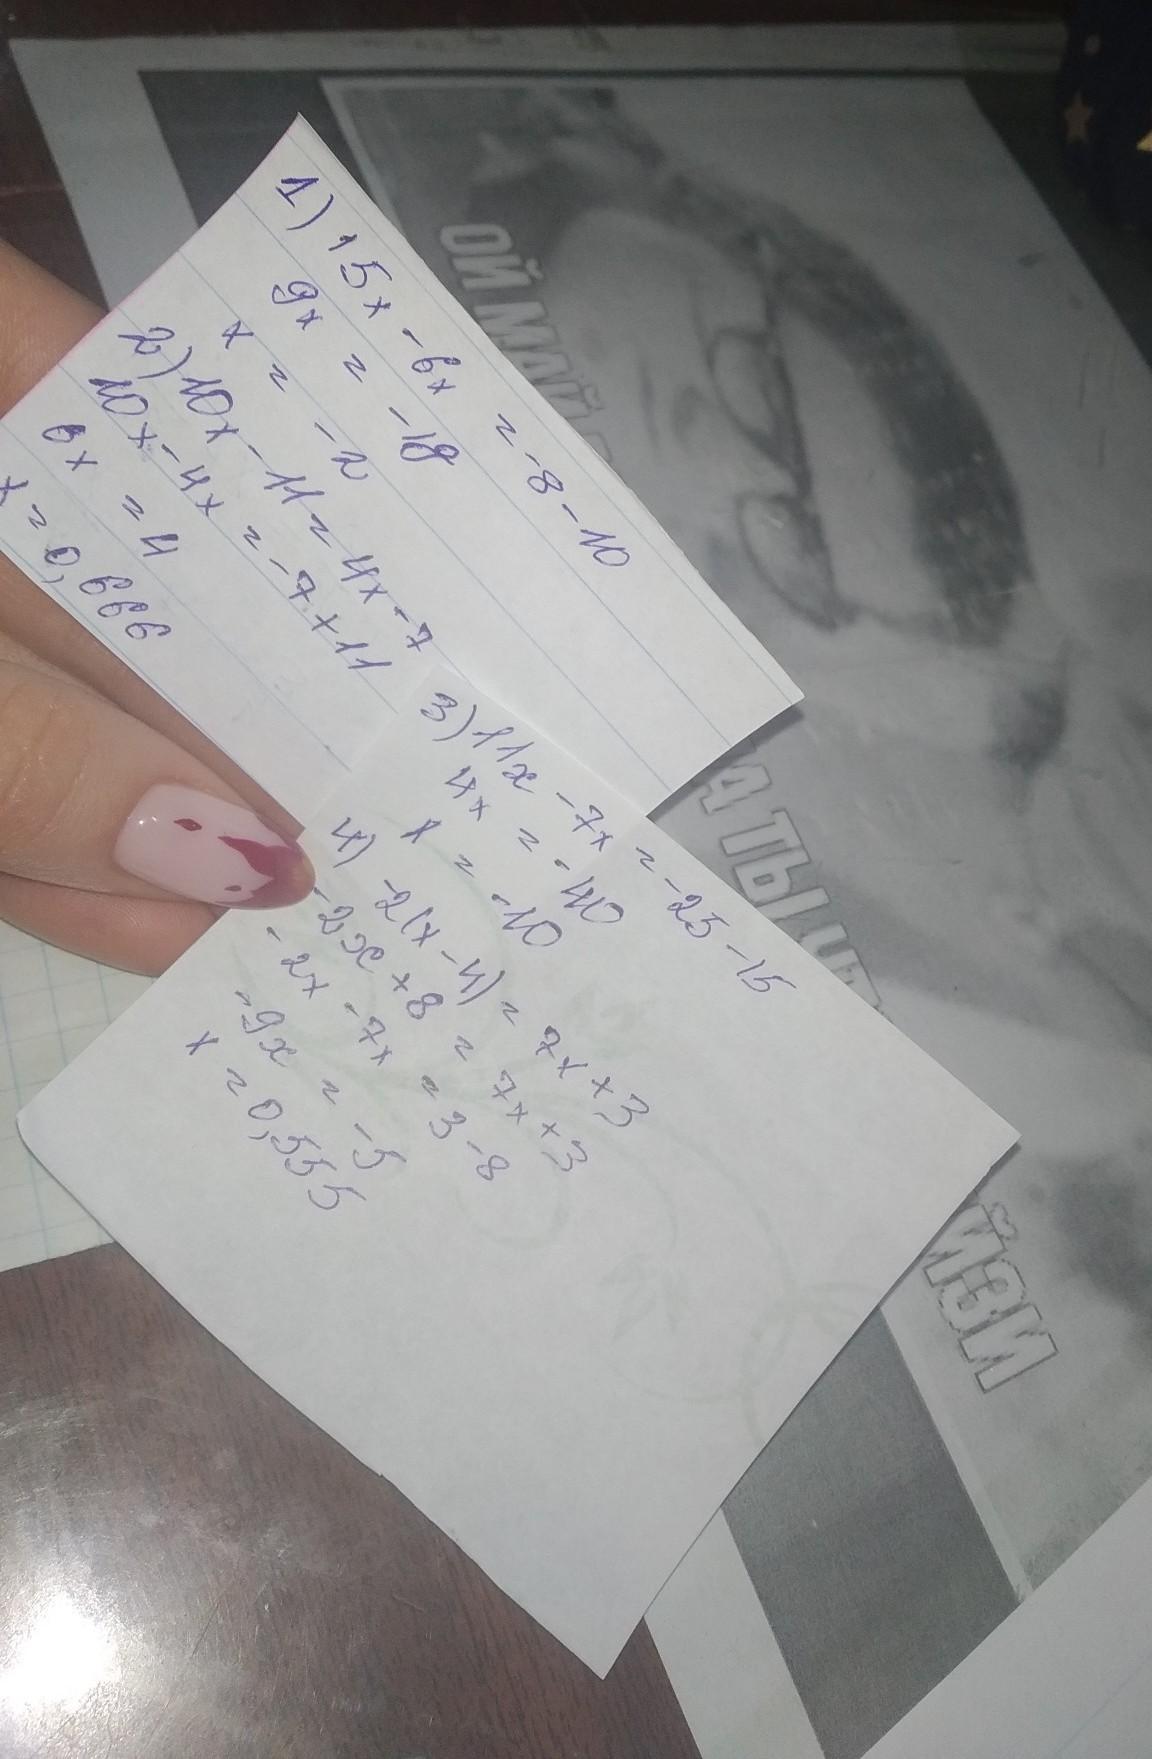 1) 15x - 6x = -8 - 10
9x = -18
x = -2
2) 10x - 11 = 4x - 7
10x - 4x = -7 + 11
6x = 4
x = 0,666
3) 11x - 7x = -25 - 15
4x = -40
x = -10
4) -2(x - 4) = 7x + 3
-2x + 8 = 7x + 3
-2x - 7x = 3 - 8
-9x = -5
x = 0,555
ОЙ МАЙ
ТЫ
ЙЗИ